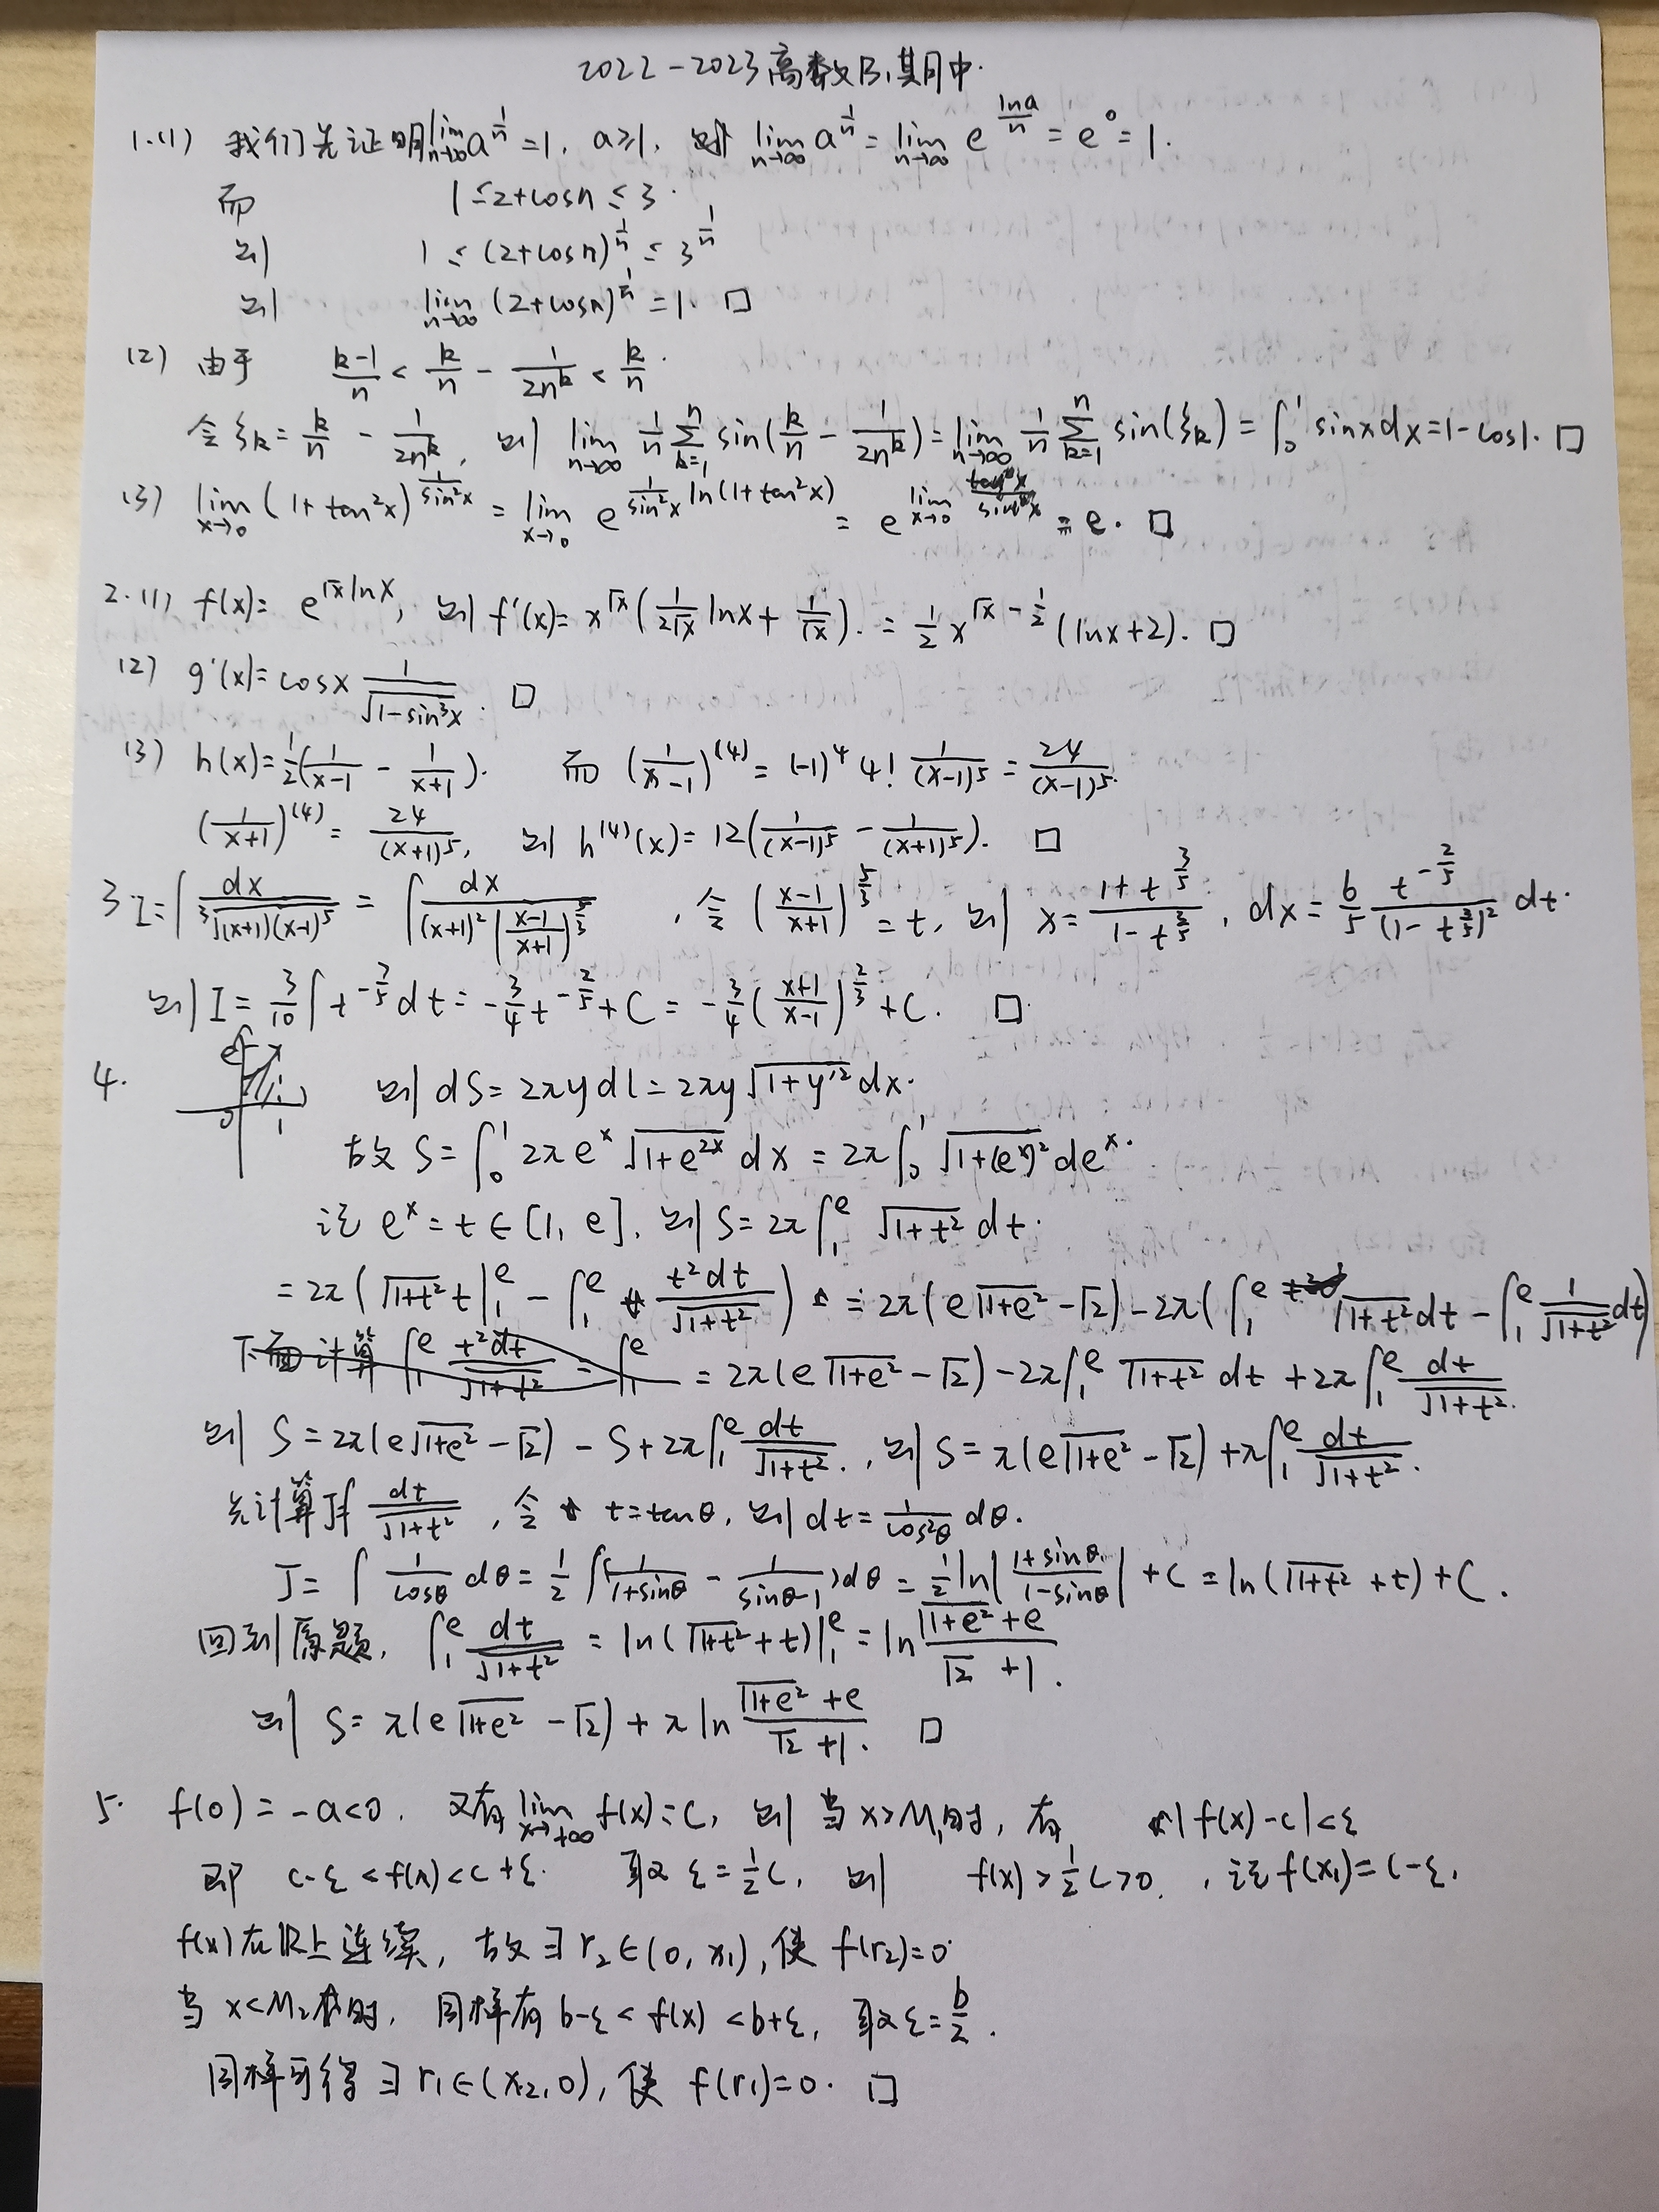 2022-2023高数B₁期中.
1.(1) 我们先证明 lim_{n→∞} a^{1/n} = 1, a≥1, 则 lim_{n→∞} a^{1/n} = lim_{n→∞} e^{lna/n} = e^0 = 1.
而 1≤2+cosn≤3.
则 1≤(2+cosn)^{1/n}≤3^{1/n}
则 lim_{n→∞} (2+cosn)^{1/n} = 1. □
(2) 由于 (k-1)/n < k/n - 1/(2n^k) < k/n.
令 ξ_k = k/n - 1/(2n^k), 则 lim_{n→∞} 1/n ∑_{k=1}^{n} sin(k/n - 1/(2n^k)) = lim_{n→∞} 1/n ∑_{k=1}^{n} sin(ξ_k) = ∫_0^1 sinxdx = 1-cos1. □
(3) lim_{x→0} (1+tan²x)^{1/sin²x} = lim_{x→0} e^{1/sin²x ln(1+tan²x)} = e^{lim_{x→0} tan²x/sin²x} = e. □
2.(1) f(x) = e^{√x lnx}, 则 f'(x) = x^{√x}(1/(2√x) lnx + 1/√x). = 1/2 x^{√x - 1/2}(lnx+2). □
(2) g'(x) = cosx 1/√(1-sin³x). □
(3) h(x) = 1/2(1/(x-1) - 1/(x+1)). 而 (1/(x-1))^{(4)} = (-1)^4 4! 1/(x-1)^5 = 24/(x-1)^5.
(1/(x+1))^{(4)} = 24/(x+1)^5, 则 h^{(4)}(x) = 12(1/(x-1)^5 - 1/(x+1)^5). □
3 I = ∫ dx/∛((x+1)(x-1)^5) = ∫ dx/((x+1)²((x-1)/(x+1))^{5/3}), 令 ((x-1)/(x+1))^{5/3} = t, 则 x = (1+t^{3/5})/(1-t^{3/5}), dx = 6/5 t^{-2/5}/(1-t^{3/5})² dt.
则 I = 3/10 ∫ t^{-7/5} dt = -3/4 t^{-2/5} + C = -3/4((x+1)/(x-1))^{2/3} + C. □
4. e 1 0 1 则 dS = 2πydl = 2πy√(1+y'²) dx.
故 S = ∫_0^1 2πe^x √(1+e^{2x}) dx = 2π∫_0^1 √(1+(e^x)²) de^x.
记 e^x = t ∈ [1, e], 则 S = 2π∫_1^e √(1+t²) dt.
= 2π(√(1+t²) t|_1^e - ∫_1^e t²dt/√(1+t²)) = 2π(e√(1+e²) - √2) - 2π(∫_1^e √(1+t²) dt - ∫_1^e 1/√(1+t²) dt)
= 2π(e√(1+e²) - √2) - 2π∫_1^e √(1+t²) dt + 2π∫_1^e dt/√(1+t²).
则 S = 2π(e√(1+e²) - √2) - S + 2π∫_1^e dt/√(1+t²), 则 S = π(e√(1+e²) - √2) + π∫_1^e dt/√(1+t²).
先计算 J=∫ dt/√(1+t²), 令 t = tanθ, 则 dt = 1/cos²θ dθ.
J = ∫ 1/cosθ dθ = 1/2 ∫(1/(1+sinθ) - 1/(sinθ-1))dθ = 1/2 ln|(1+sinθ)/(1-sinθ)| + C = ln(√(1+t²) + t) + C.
回到原题, ∫_1^e dt/√(1+t²) = ln(√(1+t²) + t)|_1^e = ln (√(1+e²)+e)/(√2+1).
则 S = π(e√(1+e²) - √2) + π ln (√(1+e²)+e)/(√2+1). □
5. f(0) = -a<0. 又有 lim_{x→+∞} f(x) = c, 则 当 x>M₁时, 有 |f(x)-c|<ε
即 c-ε<f(x)<c+ε. 取 ε = 1/2 c, 则 f(x)>1/2 c>0, 记 f(x₁) = c-ε.
f(x)在ℝ上连续, 故∃ r₂∈(0, x₁), 使 f(r₂)=0.
当 x<M₂时, 同样有 b-ε<f(x)<b+ε, 取 ε = b/2.
同样可得 ∃ r₁∈(x₂, 0), 使 f(r₁)=0. □